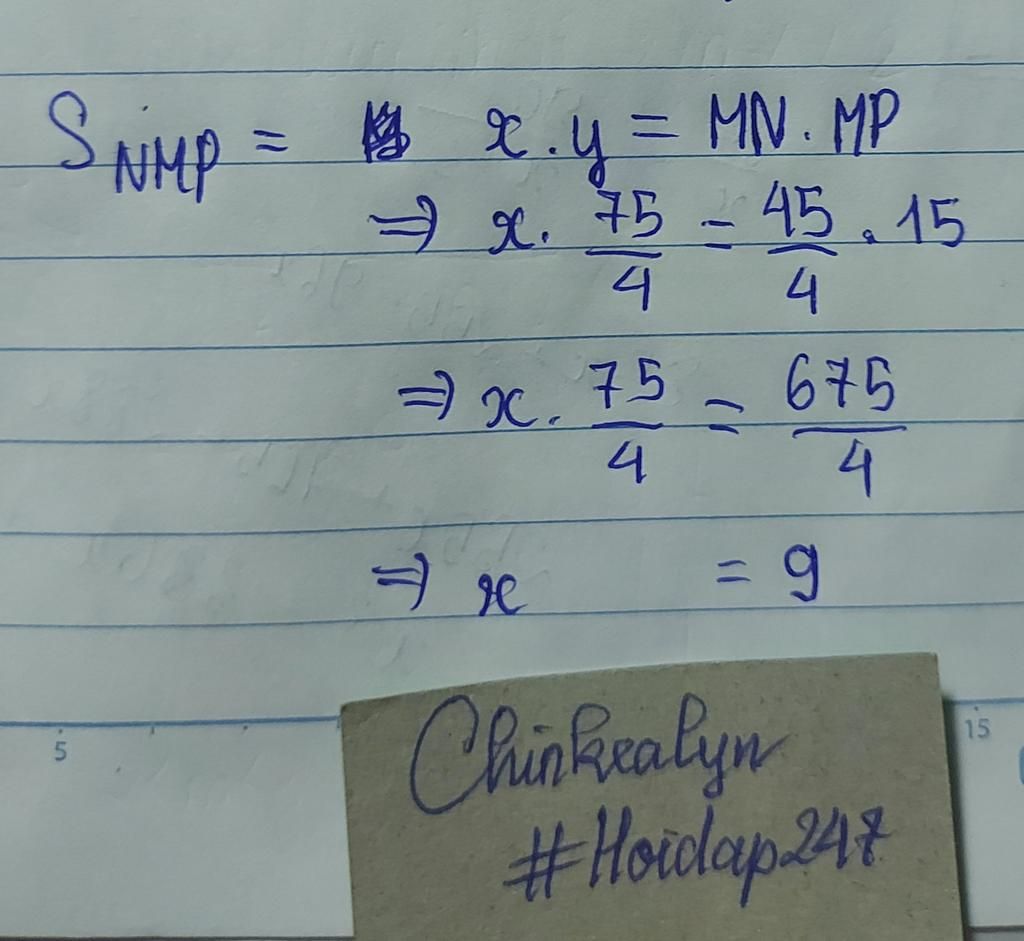 S_NMP = x.y = MN.MP
⇒ x. 75/4 = 45/4 . 15
⇒ x. 75/4 = 675/4
⇒ x = 9
5
15
Chinkealyn
#Hoidap247